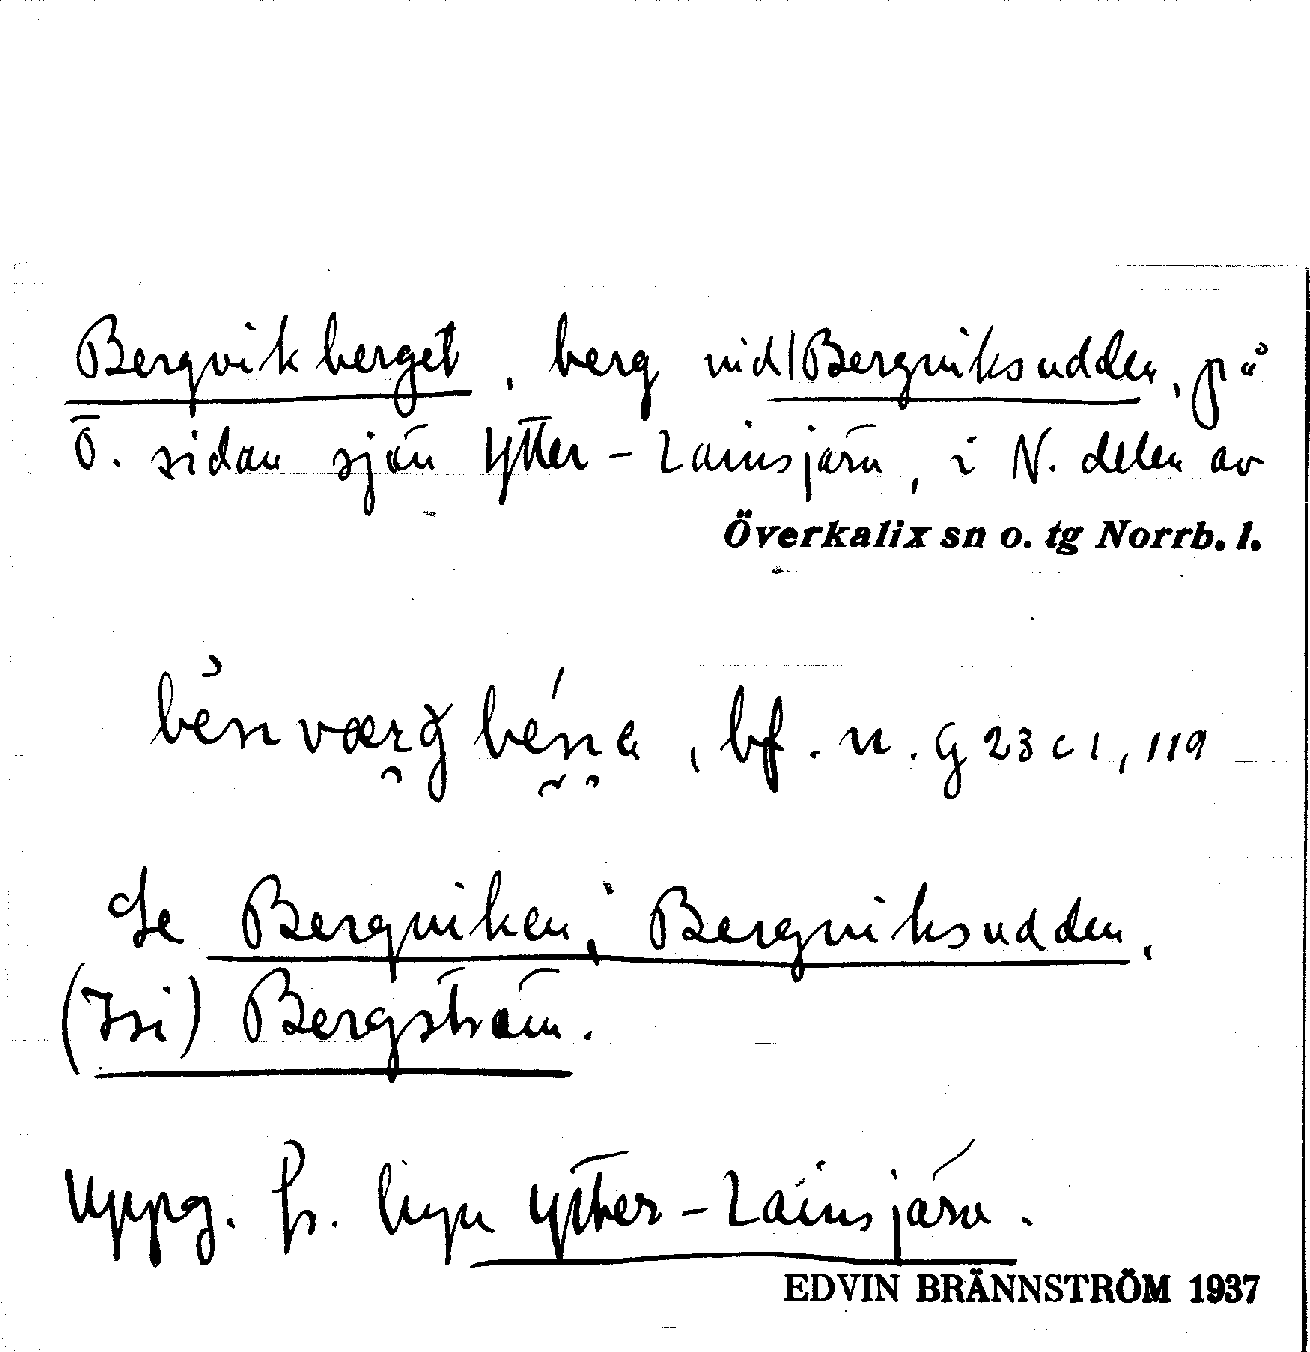 Bergvikberget, berg vid Bergviksudden, på
Ö. sidan sjön Ytter-Lainsjärv, i N. delen av
Överkalix sn o. tg Norrb. l.
bf. n. G 23 c 1, 119
Se Bergviken, Bergviksudden,
Bergström.
Uppg. fr. byn Ytter-Lainsjärv.
EDVIN BRÄNNSTRÖM 1937